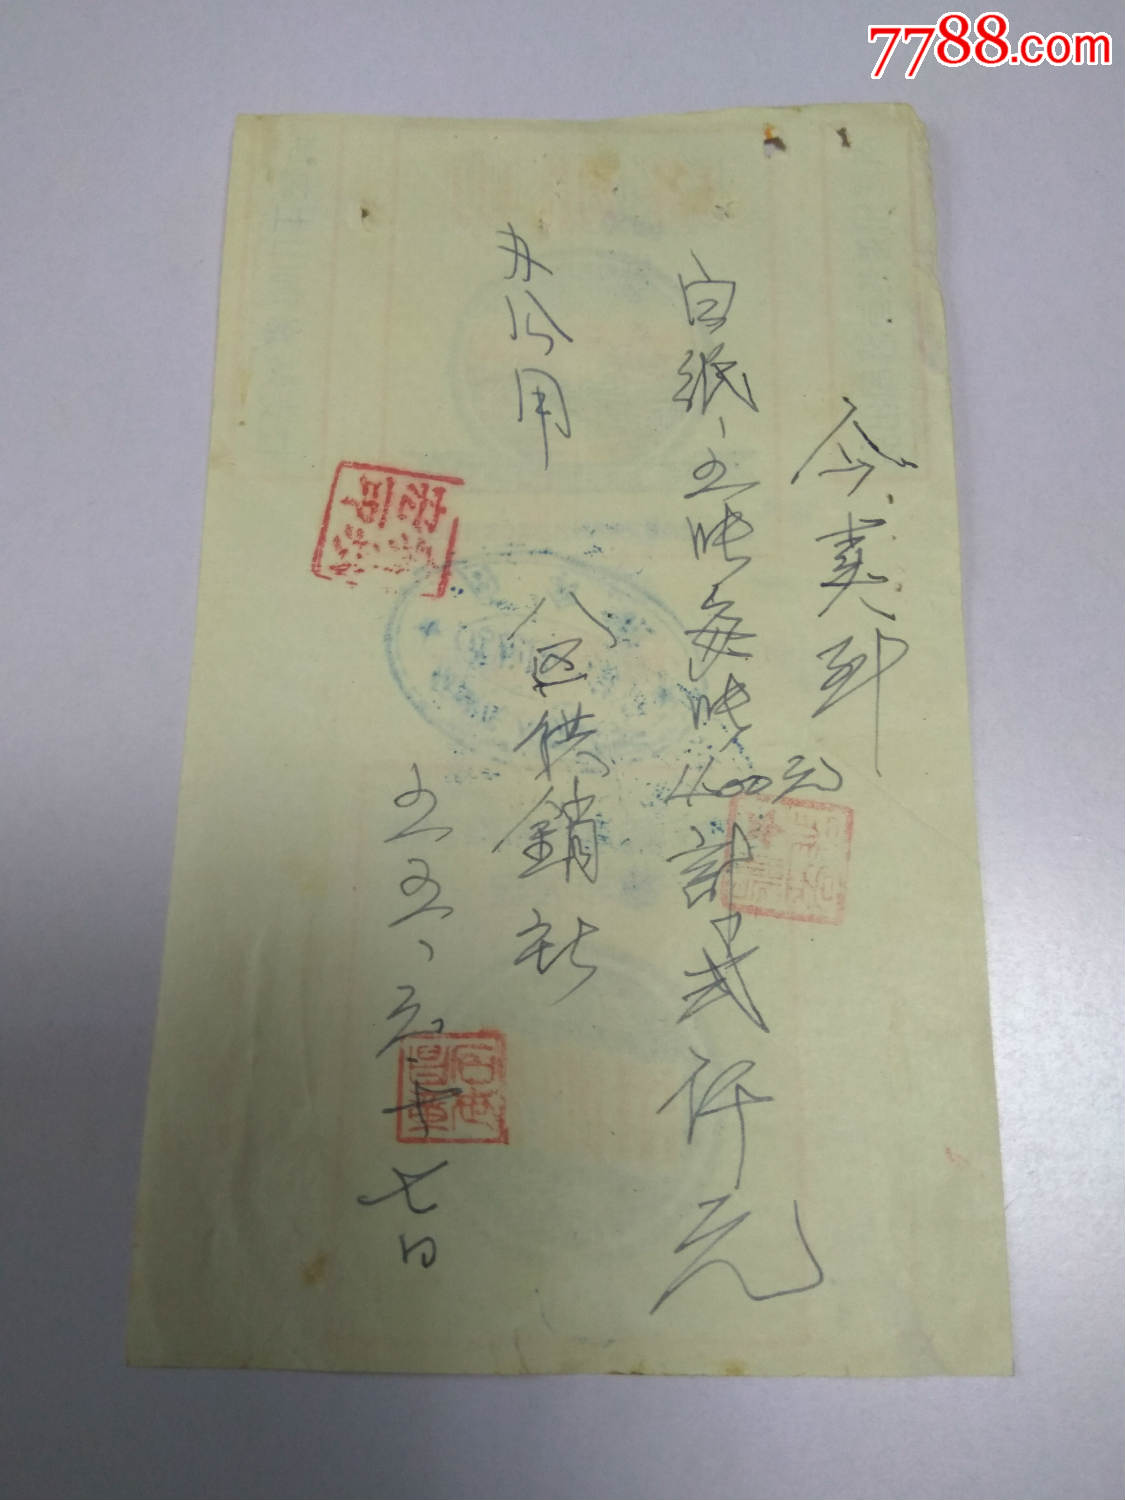 7788.com
今卖到
白纸五张每张400元計弍仟元
办公用
八区供銷社
五五、元、十七日